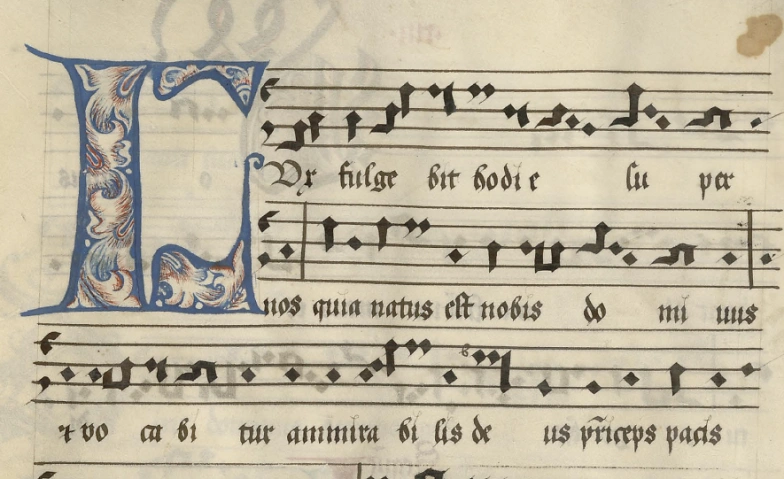 LVx fulge bit hodi e su per
nos quia natus est nobis do mi nus
et vo ca bi tur ammira bi lis de us pr̄iceps pacis